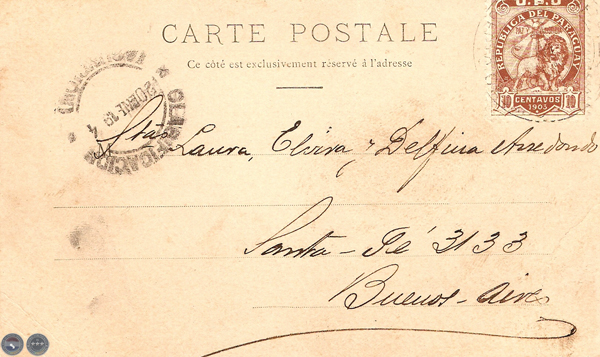 CARTE POSTALE
Ce côté est exclusivement réservé à l'adresse
U.P.U
REPUBLICA DEL PARAGUAY
PAZ Y
CENTAVOS
1903
CLASIFICACION
20 ENE 19
4
Stas Laura, Elvira y Delfina Arredondo
Santa-Fé 3133
Buenos-Aires